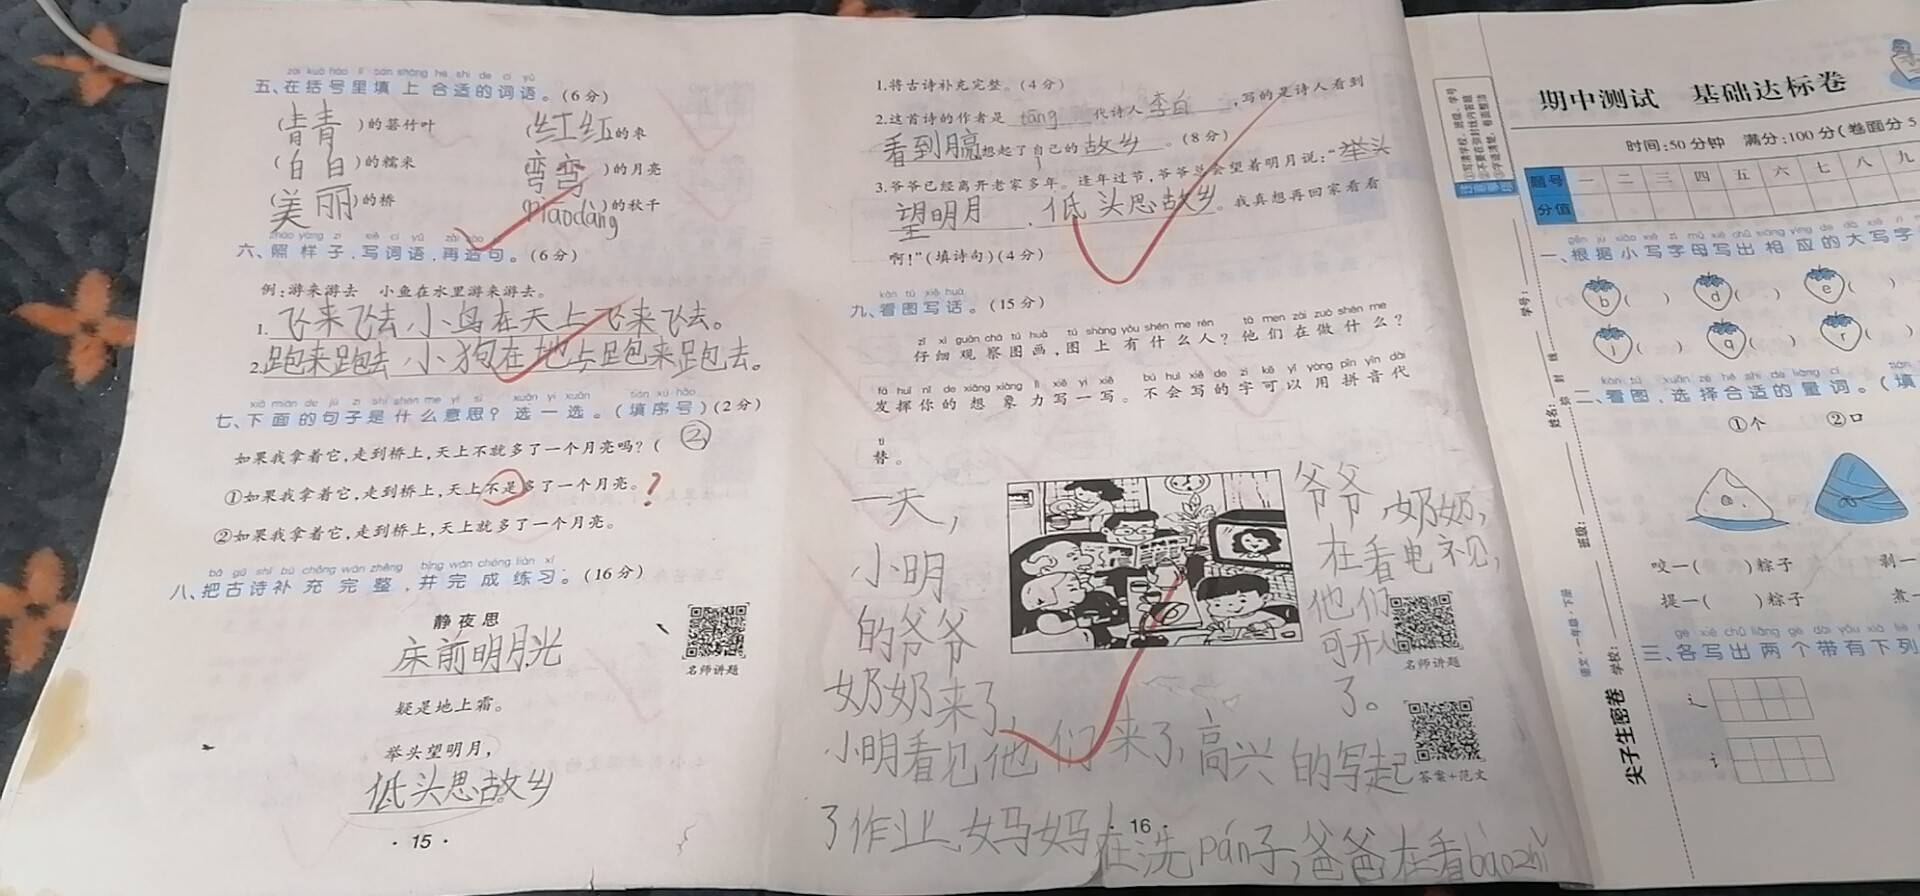 zài kuò hào lǐ tián shàng hé shì de cí yǔ
五、在括号里填上合适的词语。(6分)
(青青)的箬竹叶 (红红的枣
(白白)的糯米 弯弯)的月亮
(美丽)的桥 piāodàng)的秋千
zhào yàng zi xiě cí yǔ zài zào jù
六、照样子,写词语,再造句。(6分)
例:游来游去 小鱼在水里游来游去。
1. 飞来飞去,小鸟在天上飞来飞去。
2. 跑来跑去 小狗在地上跑来跑去。
xià miàn de jù zi shì shén me yì si xuǎn yi xuǎn tián xù hào
七、下面的句子是什么意思?选一选。(填序号)(2分)
如果我拿着它,走到桥上,天上不就多了一个月亮吗?(②
①如果我拿着它,走到桥上,天上不是多了一个月亮。?
②如果我拿着它,走到桥上,天上就多了一个月亮。
bǎ gǔ shī bǔ chōng wán zhěng bìng wán chéng liàn xí
八、把古诗补充完整,并完成练习。(16分)
静夜思
床前明月光
疑是地上霜。
名师讲题
举头望明月,
低头思故乡
·15·
1.将古诗补充完整。(4分)
2.这首诗的作者是 táng 代诗人 李白 ,写的是诗人看到
看到月亮 想起了自己的 故乡 。(8分)
3.爷爷已经离开老家多年。逢年过节,爷爷总会望着明月说:“举头
望明月 , 低头思故乡 。我真想再回家看看
啊!”(填诗句)(4分)
kàn tú xiě huà
九、看图写话。(15分)
zǐ xì guān chá tú huà tú shàng yǒu shén me rén tā men zài zuò shén me
仔细观察图画,图上有什么人?他们在做什么?
fā huī nǐ de xiǎng xiàng lì xiě yi xiě bú huì xiě de zì kě yǐ yòng pīn yīn dài
发挥你的想象力写一写。不会写的字可以用拼音代
tì
替。
一天,
小明
的爷爷
奶奶来了,
小明看见他们来了,高兴的写起
了作业,妈妈在洗pán子,爸爸在看bàozhǐ
爷爷,奶奶,
在看电视,
他们
可开心
了。
名师讲题
答案+范文
·16·
期中测试 基础达标卷
时间:50分钟 满分:100分(卷面分5
题号 一 二 三 四 五 六 七 八 九
分值
一、根据小写字母写出相应的大写字
b( ) d( ) e( )
i( ) q( ) r( )
二、看图,选择合适的量词。(填
①个 ②口
咬一( )粽子 剥一
提一( )粽子 煮一
三、各写出两个带有下列
辶
讠
学号:
姓名:
班级:
学校:
语文·一年级·下册
尖子生密卷